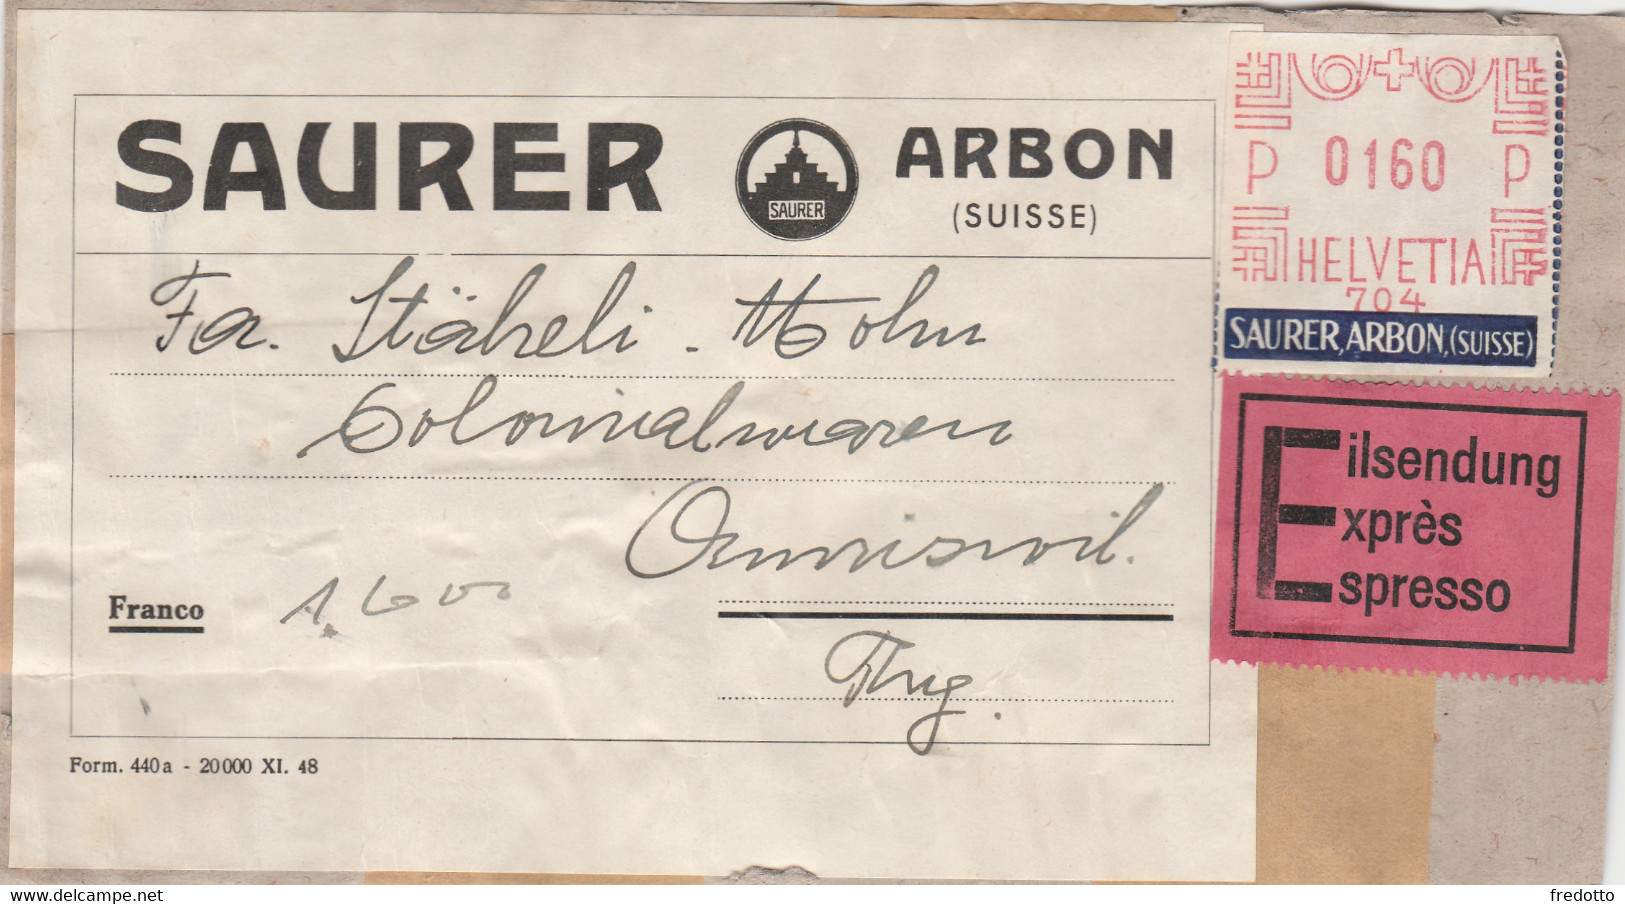 SAURER
SAURER
ARBON
(SUISSE)
Fa. Stäheli - Mohn
Colonialwaren
Amriswil.
Franco
1.600
Thrg.
Form. 440 a - 20 000 XI. 48
P 0160 P
HELVETIA
704
SAURER, ARBON, (SUISSE)
Eilsendung
Exprès
Espresso
www.delcampe.net
fredotto